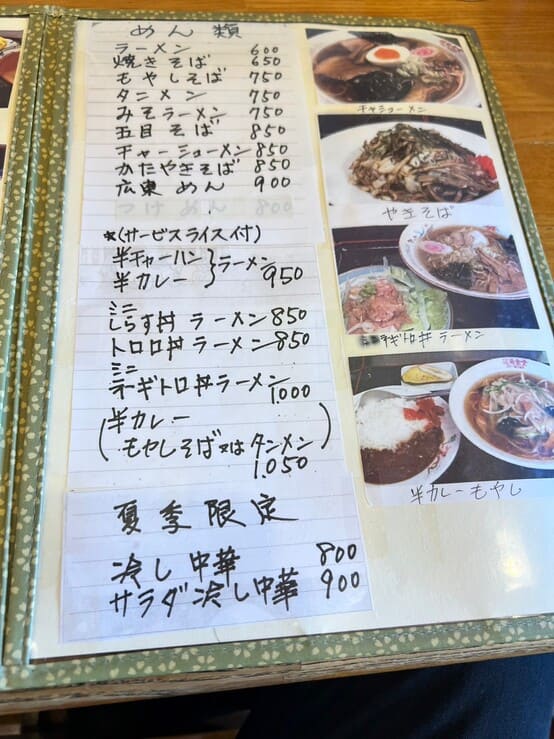 めん類
ラーメン 600
焼きそば 650
もやしそば 750
タンメン 750
みそラーメン 750
五目そば 850
チャーシューメン 850
かたやきそば 850
広東めん 900
つけめん 800
★(サービスライス付)
半チャーハン
半カレー } ラーメン 950
ミニ
しらす丼 ラーメン 850
トロロ丼 ラーメン 850
ミニ
ネギトロ丼ラーメン 1000
(半カレー
もやしそば又はタンメン)
1.050
夏季限定
冷し中華 800
サラダ冷し中華 900
チャーシューメン
やきそば
ネギトロ丼 ラーメン
半カレーもやし